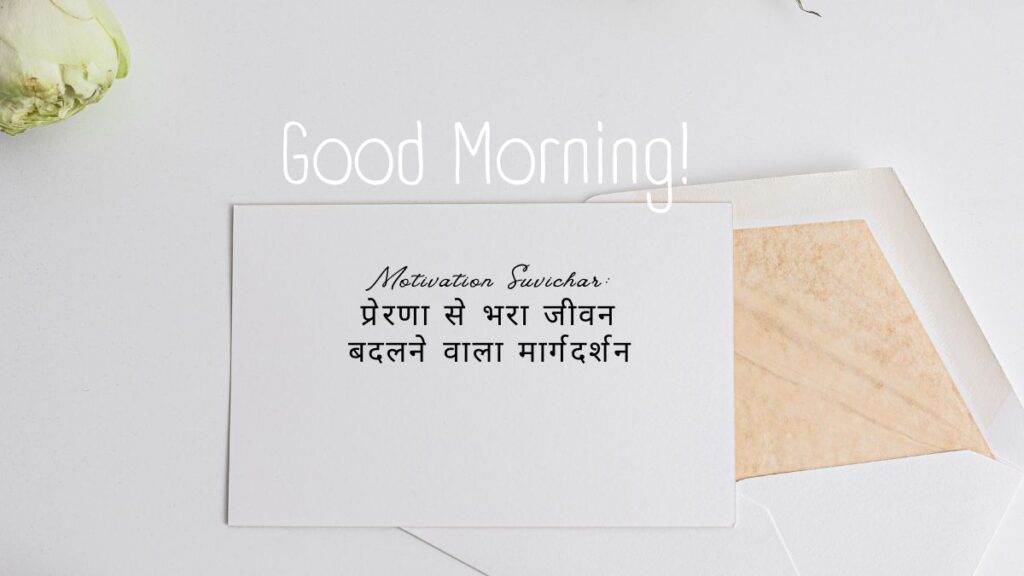 Good Morning!
Motivation Suvichar:
प्रेरणा से भरा जीवन
बदलने वाला मार्गदर्शन